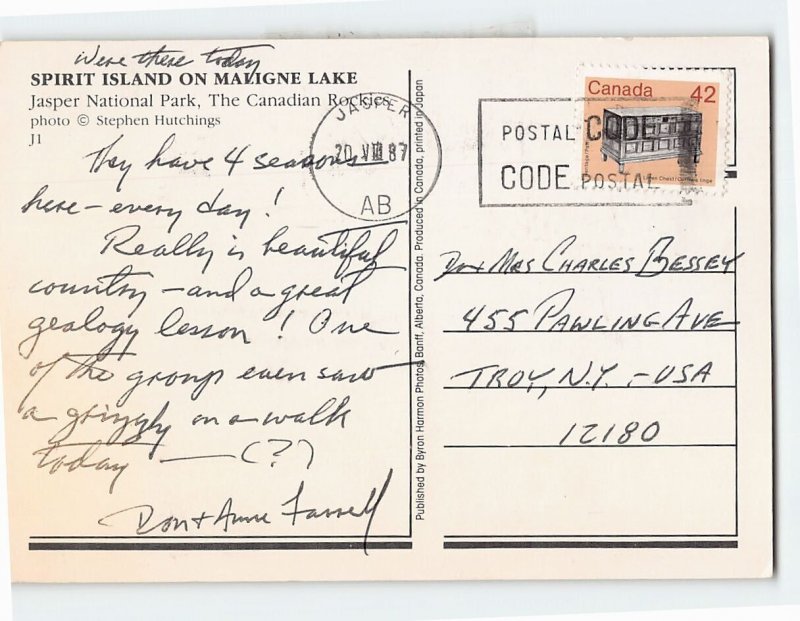 Were there today
SPIRIT ISLAND ON MALIGNE LAKE
Jasper National Park, The Canadian Rockies
photo © Stephen Hutchings
J1
They have 4 seasons
here – every day!
Really is beautiful
country – and a great
geology lesson! One
of the group even saw
a grizzly on a walk
today — (?)
Don + Anne Farrell
Published by Byron Harmon Photos, Banff, Alberta, Canada. Produced in Canada, printed in Japan
JASPER
20 VIII 87
AB
POSTAL CODE
CODE POSTAL
Canada 42
Linen Chest/
Dr + Mrs CHARLES BESSEY
455 PAWLING AVE
TROY, N.Y. – USA
12180